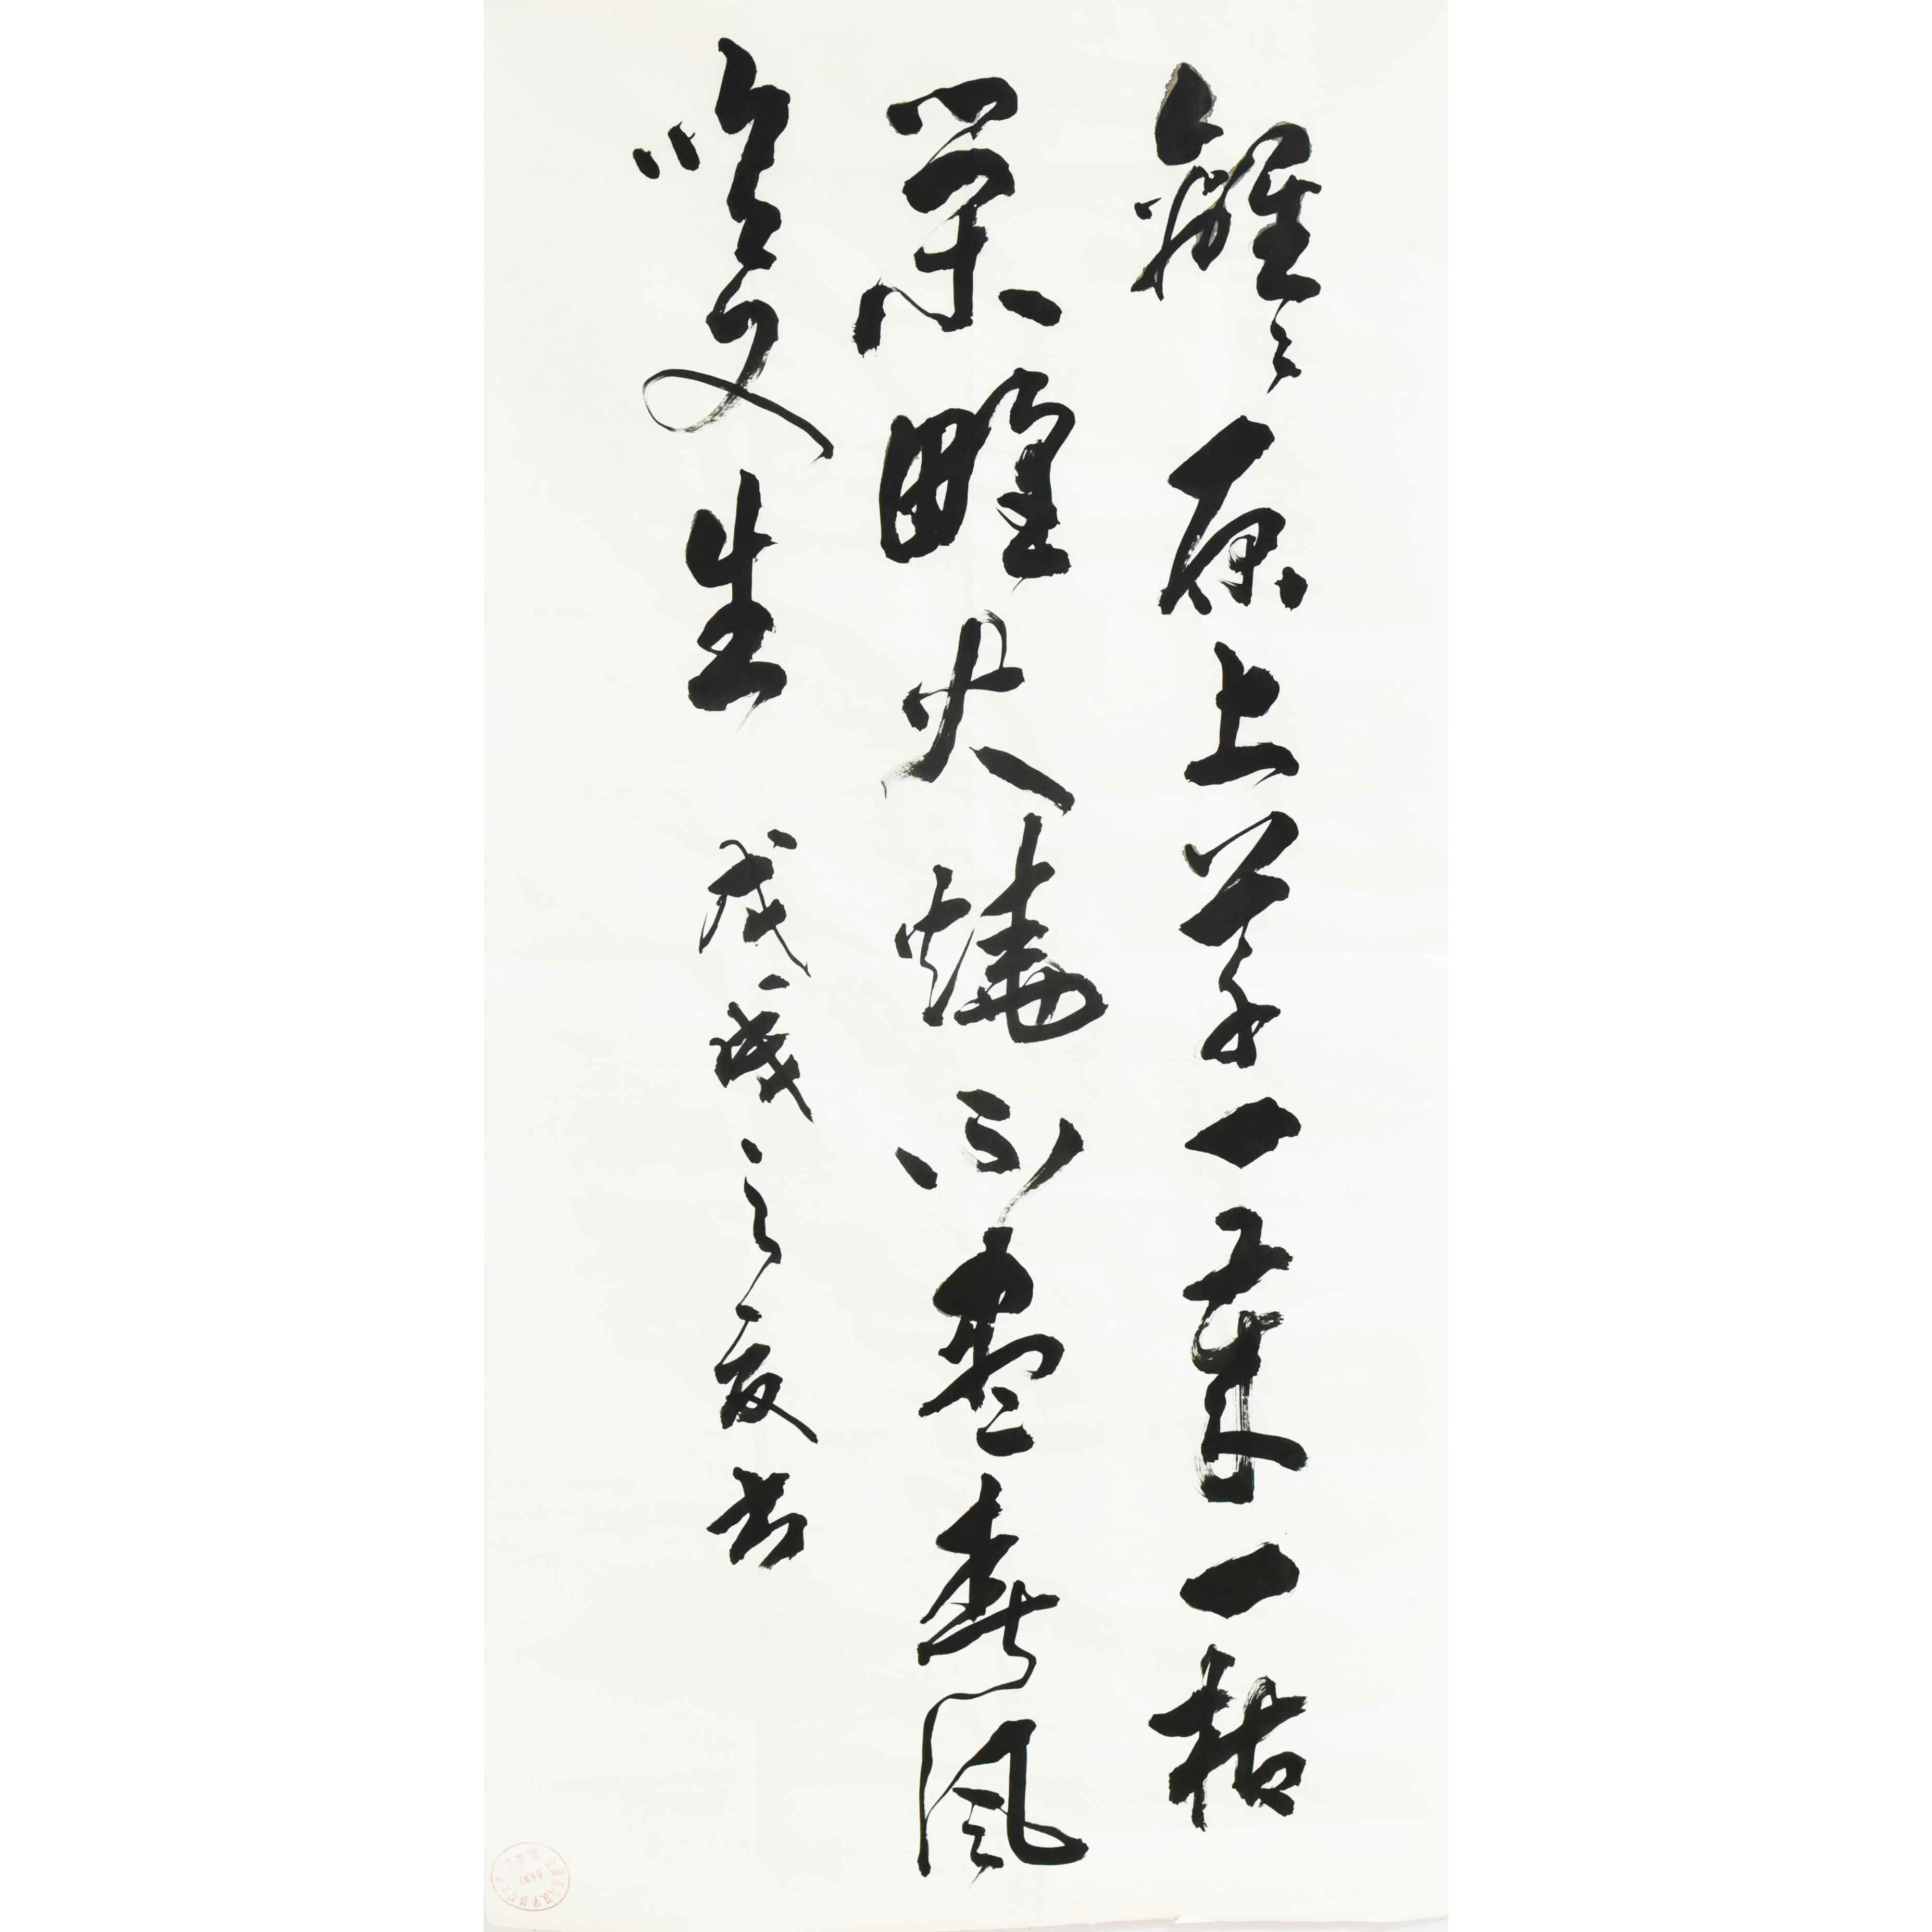 離々原上草一歲一枯
榮野火燒不盡春風
吹又生 戊戌之夏书